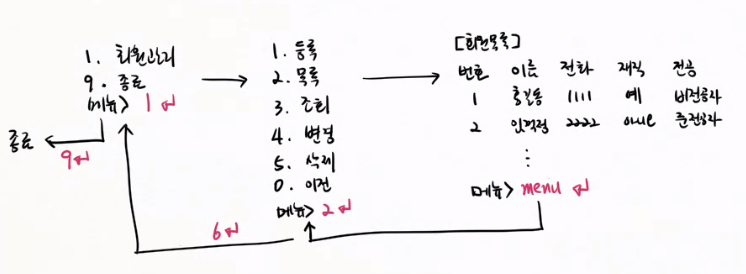 1. 회원관리
9. 종료
메뉴> 1 ↵
종료
9↵
1. 등록
2. 목록
3. 조회
4. 변경
5. 삭제
0. 이전
메뉴> 2 ↵
6 ↵
[회원목록]
번호 이름 전화 재직 전공
1 홍길동 1111 예 비전공자
2 임꺽정 2222 아니오 준전공자
⋮
메뉴> menu ↵